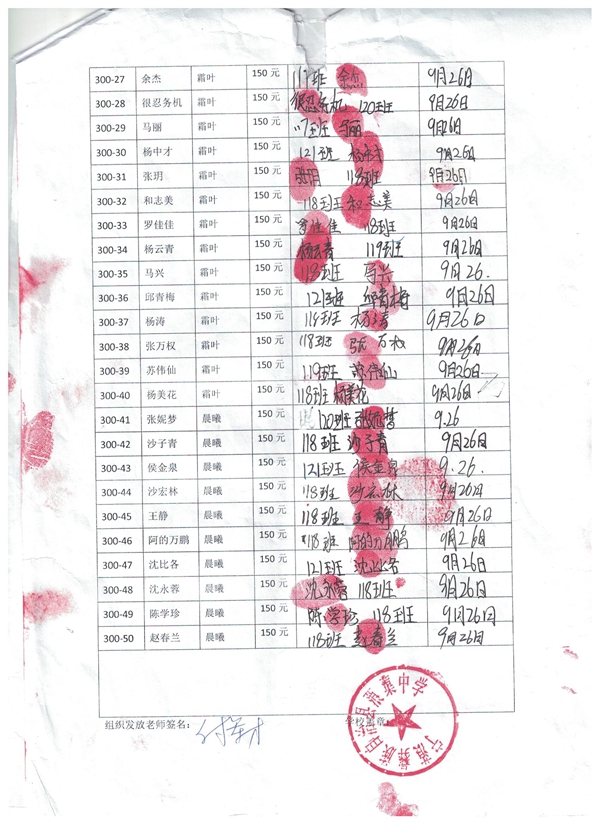 300-27 余杰 霜叶 150 元 117班 余杰 9月26日
300-28 很忍务机 霜叶 150 元 很忍务机 120班 9月26日
300-29 马丽 霜叶 150 元 117班 马丽 9月26日
300-30 杨中才 霜叶 150 元 121班 杨中才 9月26日
300-31 张玥 霜叶 150 元 张玥 118班 9月26日
300-32 和志美 霜叶 150 元 118班 和志美 9月26日
300-33 罗佳佳 霜叶 150 元 罗佳佳 118班 9月26日
300-34 杨云青 霜叶 150 元 杨云青 119班 9月26日
300-35 马兴 霜叶 150 元 118班 马兴 9月26.
300-36 邱青梅 霜叶 150 元 121班 邱青梅 9月26日
300-37 杨涛 霜叶 150 元 118班 杨涛 9月26日
300-38 张万权 霜叶 150 元 118班 张万权 9月26日
300-39 苏伟仙 霜叶 150 元 119班 苏伟仙 9月26日.
300-40 杨美花 霜叶 150 元 118班 杨美花 9月26日
300-41 张妮梦 晨曦 150 元 120班 张妮梦 9.26
300-42 沙子青 晨曦 150 元 118班 沙子青 9月26日
300-43 侯金泉 晨曦 150 元 121班 侯金泉 9.26.
300-44 沙宏林 晨曦 150 元 118班 沙宏林 9月26日
300-45 王静 晨曦 150 元 118班 王静 9月26日
300-46 阿的万鹏 晨曦 150 元 118班 阿的万鹏 9月26日
300-47 沈比各 晨曦 150 元 121班 沈比各 9月26日
300-48 沈永蓉 晨曦 150 元 沈永蓉 118班 9月26日
300-49 陈学珍 晨曦 150 元 陈学珍 118班 9月26日
300-50 赵春兰 晨曦 150 元 118班 赵春兰 9月26日
组织发放老师签名： 学校盖章：
宁蒗彝族自治县 中学